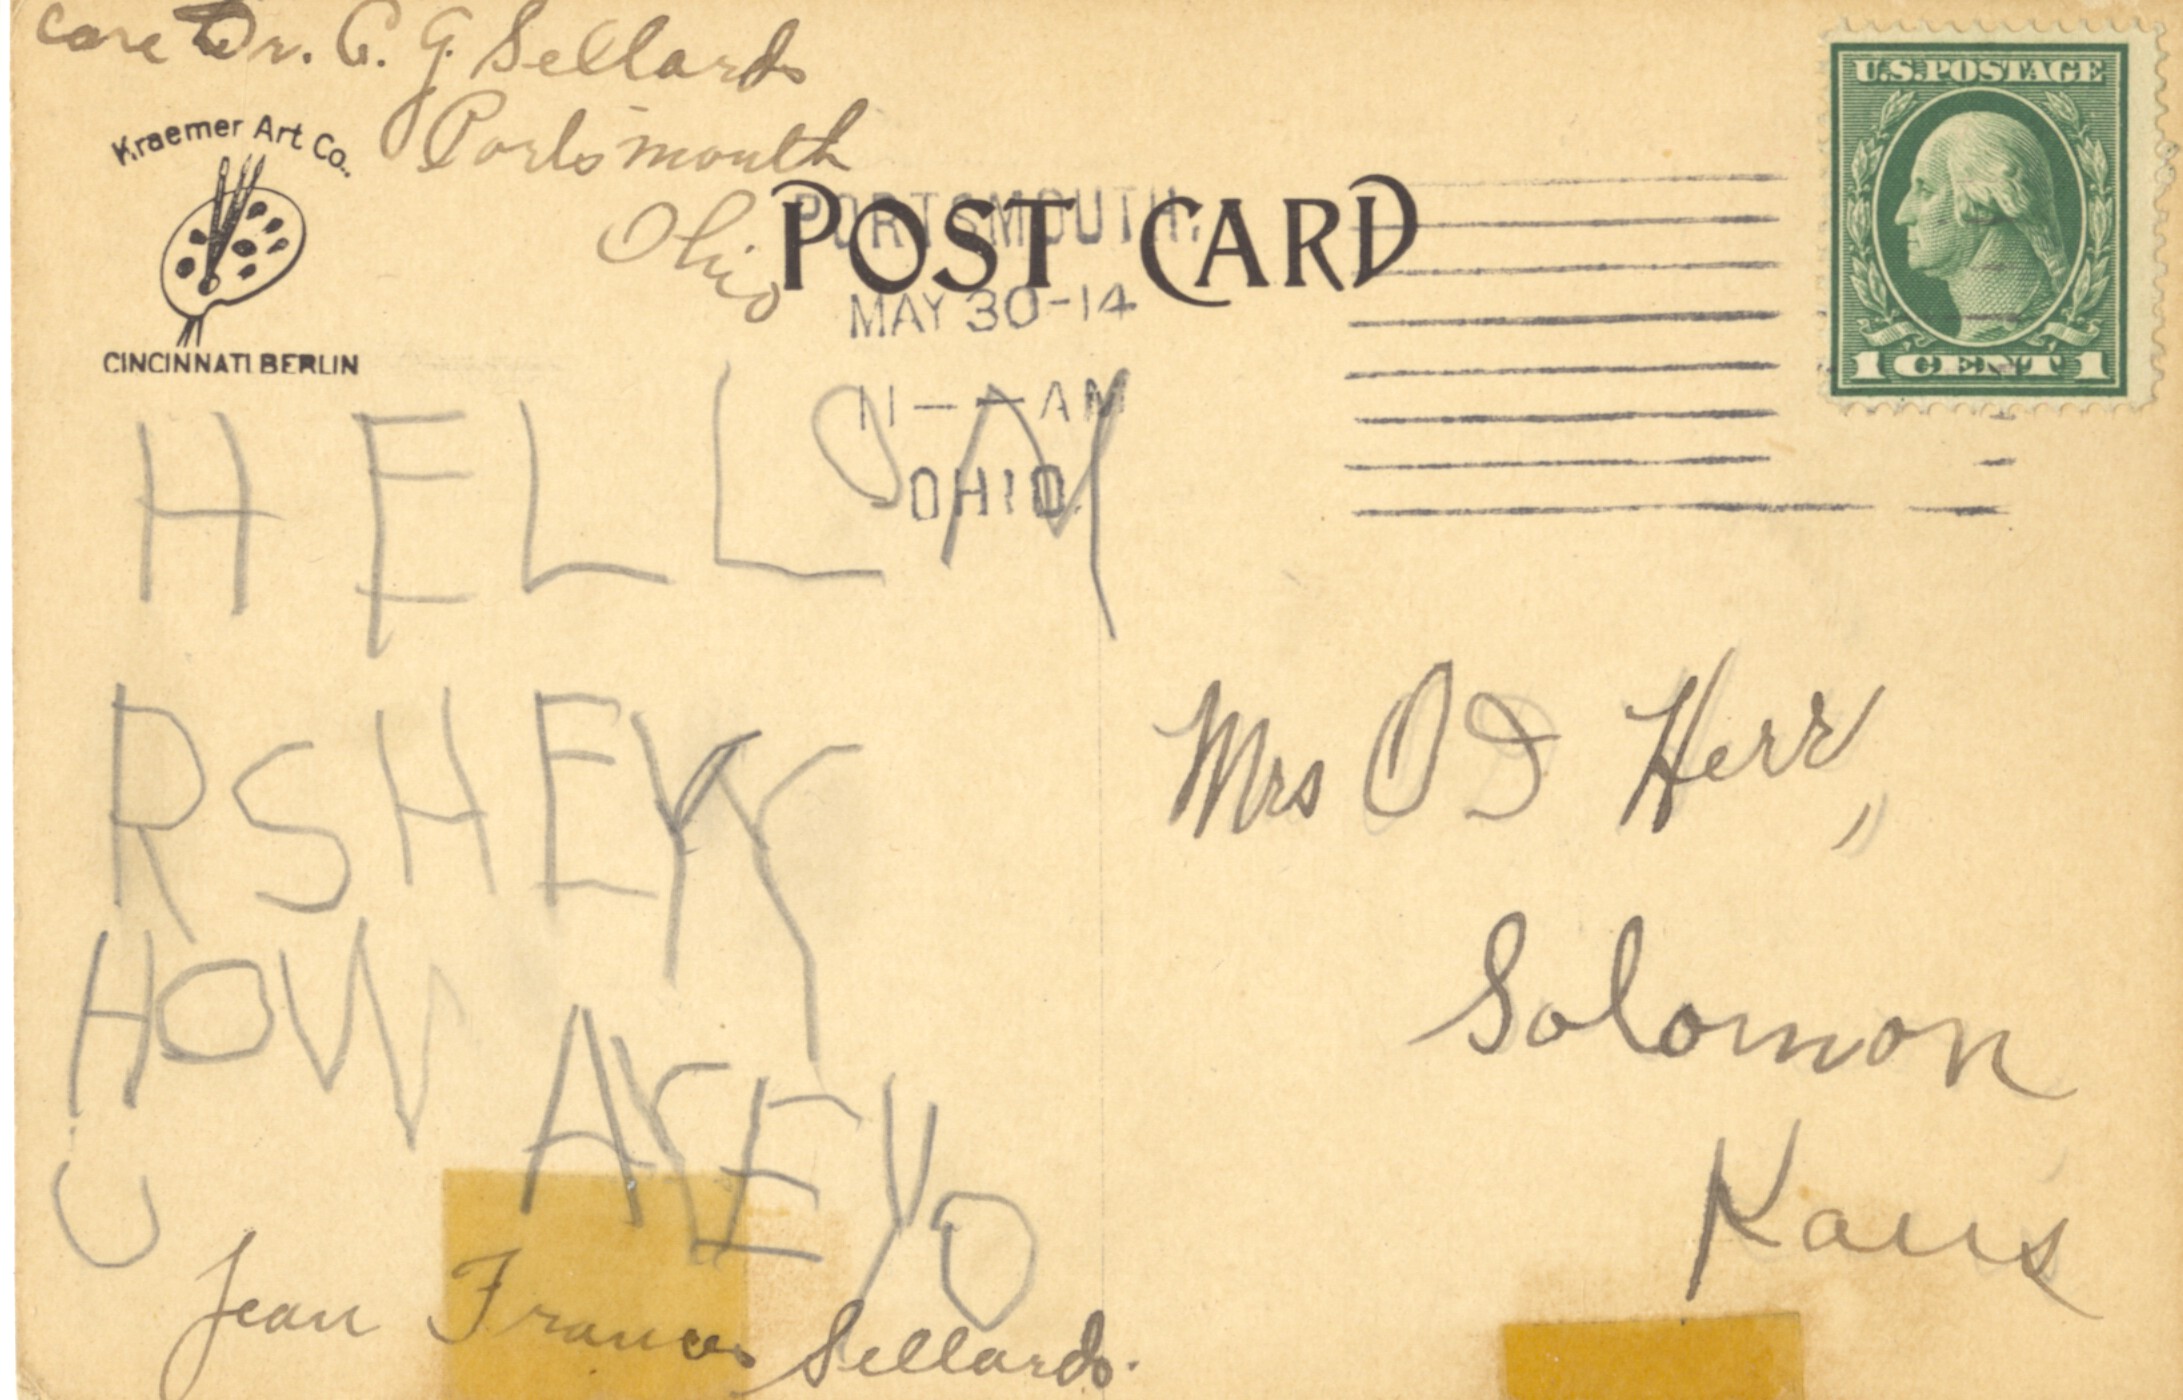 care Dr. C. G. Sellards
Portsmouth
Ohio
Kraemer Art Co.
CINCINNATI BERLIN
POST CARD
PORTSMOUTH,
MAY 30-14
11-AM
OHIO.
U.S. POSTAGE
1 CENT 1
HELLO M
RSHEYY
HOW AREYO
U
Jean Frances Sellards.
Mrs O I Herr,
Solomon
Kans